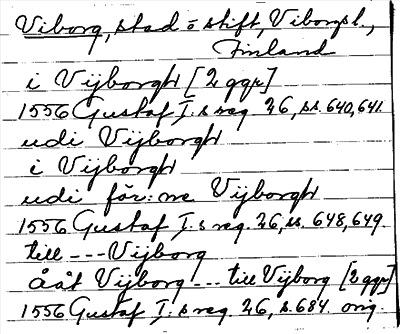 Viborg, stad o stift, Viborgsl.,
Finland
i Vijborgh [2 ggr]
1556 Gustaf I:s reg. 26, ss. 640, 641.
udi Vijborgh
i Vijborgh
udi för:ne Vijborgh
1556 Gustaf I:s reg. 26, ss. 648, 649.
till --- Vijborg
ååt Vijborg --- till Vijborg [2 ggr]
1556 Gustaf I:s reg. 26, s. 684. orig.